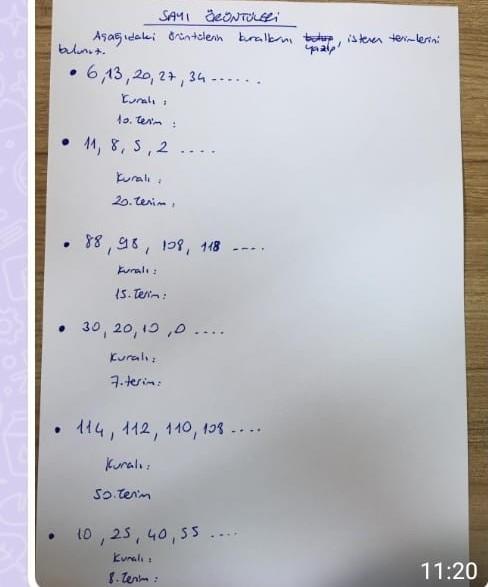 SAYI ÖRÜNTÜLERİ
Aşağıdaki örüntülerin kurallarını yazıp, istenen terimlerini
bulunuz.
• 6, 13, 20, 27, 34 ......
Kuralı :
10. terim :
• 11, 8, 5, 2 ....
Kuralı :
20. terim :
• 88, 98, 108, 118 ....
Kuralı :
15. terim :
• 30, 20, 10, 0 ....
Kuralı :
7. terim :
• 114, 112, 110, 108 ....
Kuralı :
50. terim
• 10, 25, 40, 55 ....
Kuralı :
8. terim :
11:20